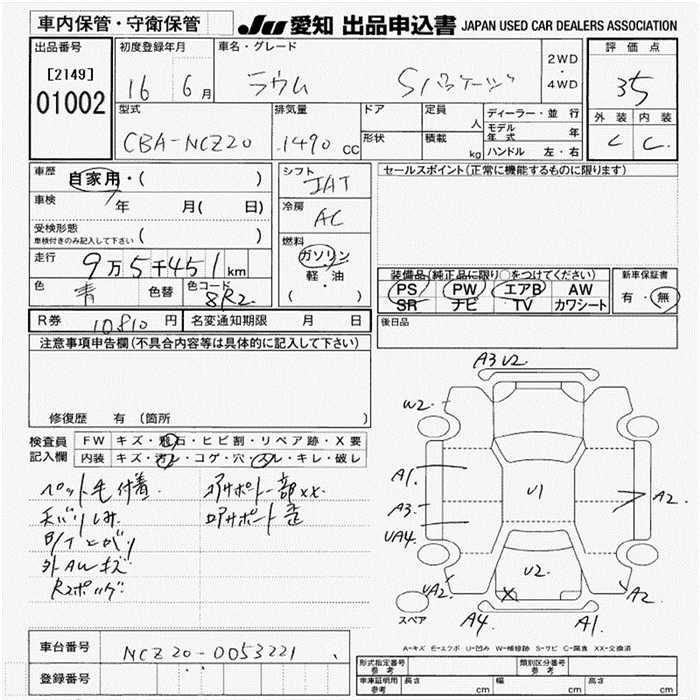 車内保管・守衛保管
JU 愛知 出品申込書 JAPAN USED CAR DEALERS ASSOCIATION
出品番号
[2149]
01002
初度登録年月
16 6月
車名・グレード
ラウム Sパケージ
2WD
・
4WD
評価点
35
外装 内装
C C
型式
CBA-NCZ20
排気量
1490 CC
ドア
形状
定員
人
積載
kg
ディーラー・並行
モデル年式 年
ハンドル 左・右
車歴
自家用・( )
車検
年 月( 日)
受検形態
車検付きのみ記入して下さい ( )
走行
9万5千451km
色
青
色替
色コード
8R2
シフト
IAT
冷房
AC
燃料
ガソリン
軽・油
( )
セールスポイント(正常に機能するものに限ります)
装備品(純正品に限り○をつけてください)
PS PW エアB AW
SR ナビ TV カワシート
新車保証書
有・無
R券 10810 円 名変通知期限 月 日
後日品
注意事項申告欄(不具合内容等は具体的に記入して下さい)
修復歴 有(箇所 )
検査員
記入欄
FW キズ・飛石・ヒビ割・リペア跡・X要
内装 キズ・汚レ・コゲ・穴・スレ・キレ・破レ
ペット毛付着
天バリしみ
外AWキズ
コアサポート一部XX
コアサポート歪
A3 U2
W2
A1
A3
UA4
UA2
U1
U2
X
A2
A2
A4
A1
スペア
A-キズ E-エクボ U-凹み W-補修跡 S-サビ C-腐食 XX-交換済
車台番号
NCZ20-0053221
登録番号
形式指定番号
参考
類別区分番号
参考
車庫証明用
参考
長さ cm 幅 cm 高さ cm